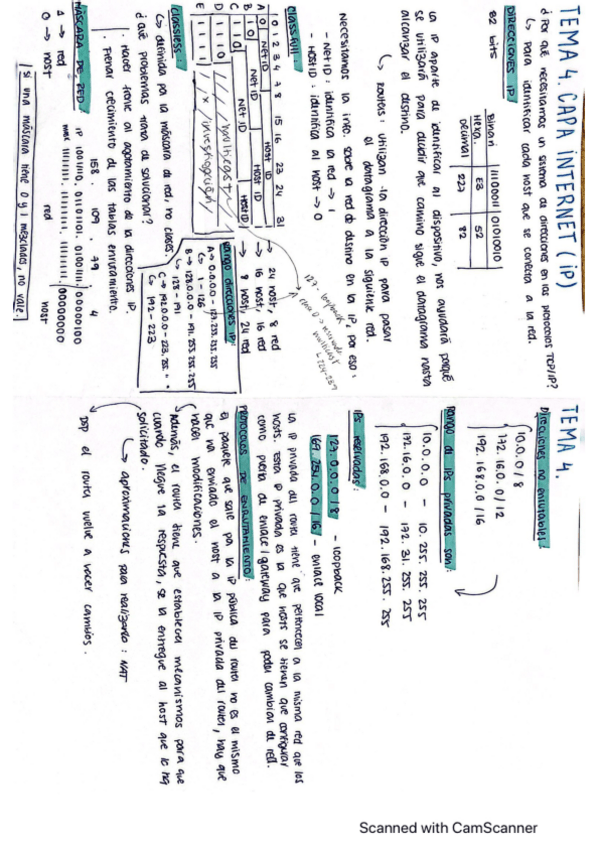 TEMA 4. CAPA INTERNET (IP)
¿Por qué necesitamos un sistema de direcciones en los protocolos TCP/IP?
↳ Para identificar cada host que se conecta a la red.
DIRECCIONES IP:
32 bits
Binari 11100011 01010010
Hexa. E3 52
Decimal 227 82
La IP aparte de identificar al dispositivo, nos ayudará porqué
se utilizará para decidir que camino sigue el datagrama hasta
alcanzar el destino.
↳ Routers: utilizan la dirección IP para pasar
el datagrama a la siguiente red.
Necesitamos la info. sobre la red de destino en la IP, por eso:
- Net ID: identifica la red → 1
- Host ID: identifica al host → 0
classfull:
0 1 2 3 4 7 8 15 16 23 24 31
A 0 Net ID Host ID → 24 host, 8 red
B 1 0 Net ID Host ID → 16 host, 16 red
C 1 1 0 Net ID Host ID → 8 host, 24 red
D 1 1 1 0 multicast
E 1 1 1 1 investigación
127 - loopback
multicast
↳ 224-239
Rango direcciones IP:
A → 0.0.0.0 - 127.255.255.255
↳ 1 - 126
B → 128.0.0.0 - 191.255.255.255
↳ 128 - 191
C → 192.0.0.0 - 223.255.
↳ 192 - 223
classless:
↳ definida por la máscara de red, no clases.
¿qué problemas trata de solucionar?
· hacer frente al agotamiento de la direcciones IP.
· Frenar crecimiento de las tablas enrutamiento.
MÁSCARA DE RED:
1 → red
0 → host
158 . 109 . 79 . 4
IP 10011110. 01101101. 01001111. 00000100
MÀSK 11111111. 11111111. 11111111. 00000000
red host
si una máscara tiene 0 y 1 mezclados, no vale.
TEMA 4.
Direcciones no enrutables:
10.0.0/8
172.16.0.0/12
192.168.0.0/16
Rango de IPs privadas son:
10.0.0.0 - 10.255.255.255
172.16.0.0 - 172.31.255.255
192.168.0.0 - 192.168.255.255
IPs reservadas:
127.0.0.0/8 - loopback
169.254.0.0/16 - enlace local
La IP privada del router tiene que pertenecer a la misma red que los
hosts. Esta IP privada es la que hosts se tienen que configurar
como puerta de enlace/gateway para poder cambiar de red.
PROTOCOLOS DE ENRUTAMIENTO:
El paquete que sale por la IP pública del router no es el mismo
que ha enviado el host a la IP privada del router, hay que
hacer modificaciones.
Además, el router tiene que establecer mecanismos para que
cuando llegue la respuesta, se la entregue al host que lo ha
solicitado.
↳ aproximaciones para realizarlo: NAT
el router vuelve a hacer cambios.
Scanned with CamScanner